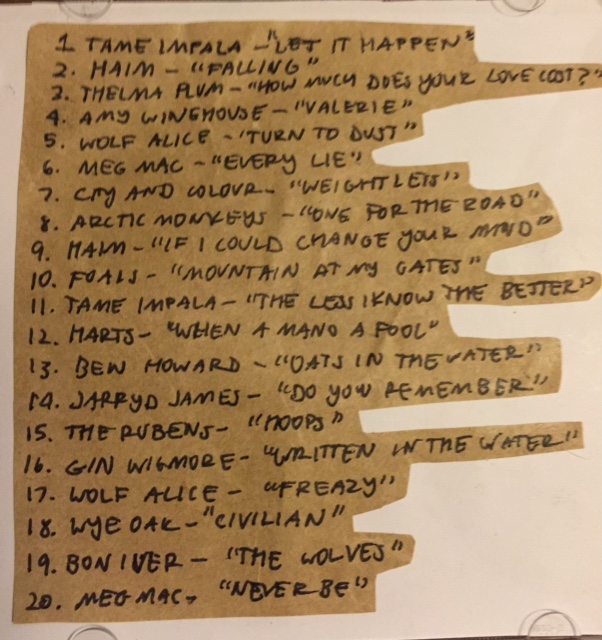 1 TAME IMPALA - "LET IT HAPPEN"
2. HAIM - "FALLING"
3. THELMA PLUM - "HOW MUCH DOES YOUR LOVE COST?"
4. AMY WINEHOUSE - "VALERIE"
5. WOLF ALICE - "TURN TO DUST"
6. MEG MAC - "EVERY LIE"
7. CITY AND COLOUR - "WEIGHTLESS"
8. ARCTIC MONKEYS - "ONE FOR THE ROAD"
9. HAIM - "IF I COULD CHANGE YOUR MIND"
10. FOALS - "MOUNTAIN AT MY GATES"
11. TAME IMPALA - "THE LESS I KNOW THE BETTER"
12. HARTS - "WHEN A MANO A FOOL"
13. BEN HOWARD - "OATS IN THE WATER"
14. JARRYD JAMES - "DO YOU REMEMBER"
15. THE RUBENS - "HOOPS"
16. GIN WIGMORE - "WRITTEN IN THE WATER"
17. WOLF ALICE - "FREAZY"
18. WYE OAK - "CIVILIAN"
19. BON IVER - "THE WOLVES"
20. MEG MAC - "NEVER BE"